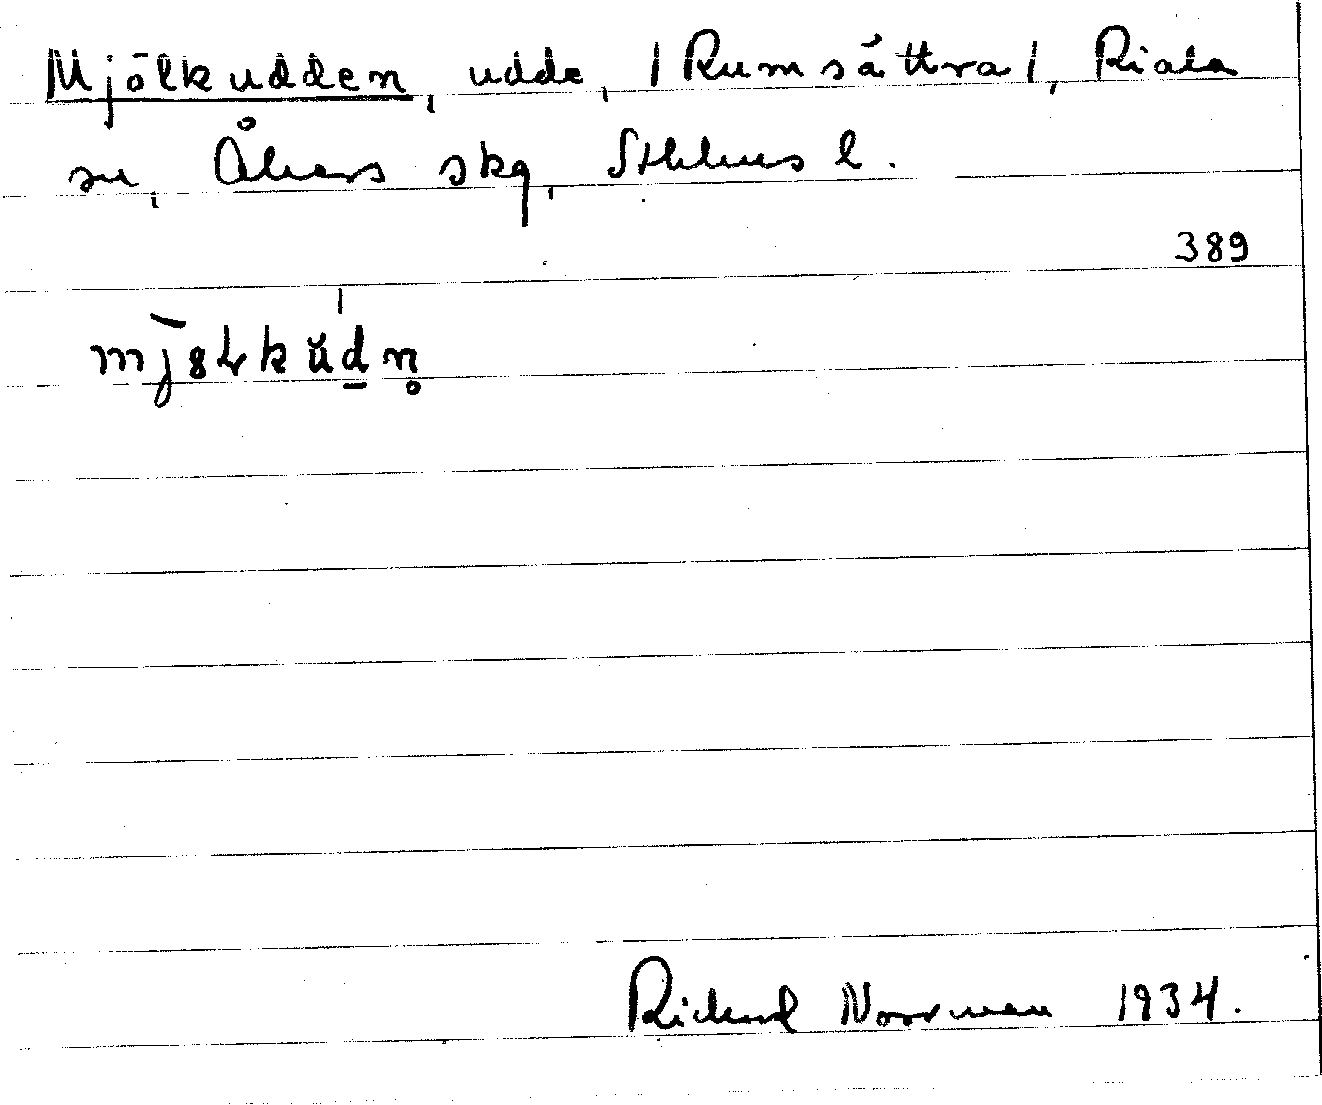 Mjölkudden, udde, /Rumsättra/, Riala
sn, Åkers skg, Sthlms l.
389
Richard Norrman 1934.